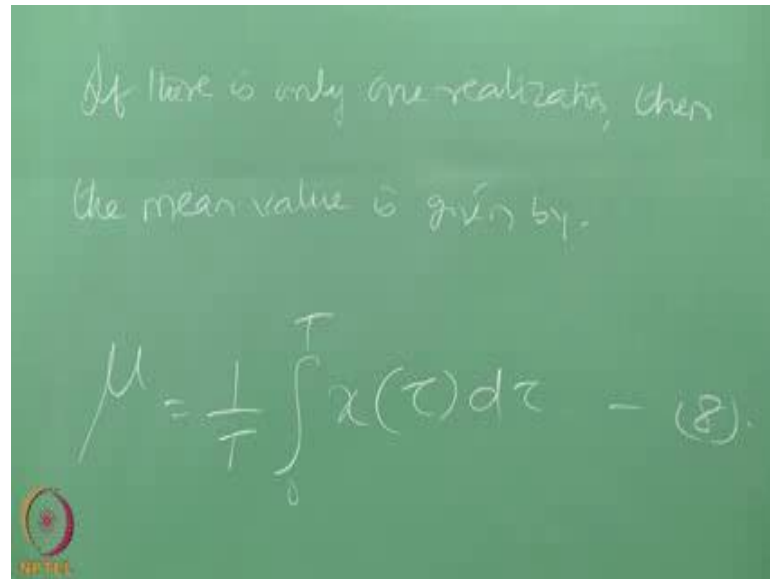 If there is only one realization, then
the mean value is given by.
μ = 1/T ∫₀ᵀ x(τ) dτ - (8).
NPTEL